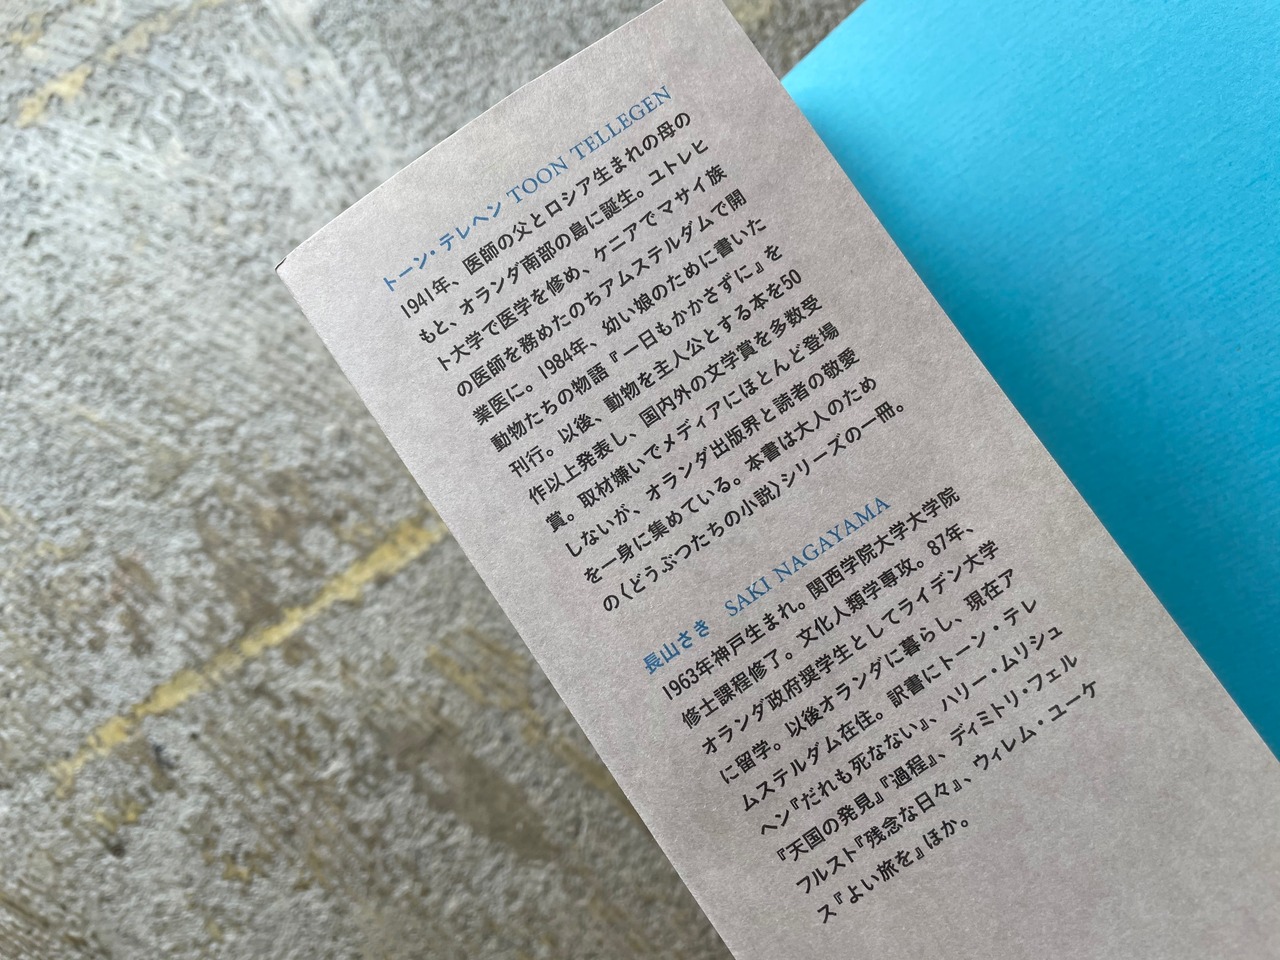 トーン・テレヘン TOON TELLEGEN
1941年、医師の父とロシア生まれの母の
もと、オランダ南部の島に誕生。ユトレヒ
ト大学で医学を修め、ケニアでマサイ族
の医師を務めたのちアムステルダムで開
業医に。1984年、幼い娘のために書いた
動物たちの物語『一日もかかさずに』を
刊行。以後、動物を主人公とする本を50
作以上発表し、国内外の文学賞を多数受
賞。取材嫌いでメディアにほとんど登場
しないが、オランダ出版界と読者の敬愛
を一身に集めている。本書は大人のため
の〈どうぶつたちの小説〉シリーズの一冊。
長山さき SAKI NAGAYAMA
1963年神戸生まれ。関西学院大学大学院
修士課程修了。文化人類学専攻。87年、
オランダ政府奨学生としてライデン大学
に留学。以後オランダに暮らし、現在ア
ムステルダム在住。訳書にトーン・テレ
ヘン『だれも死なない』、ハリー・ムリシュ
『天国の発見』『過程』、ディミトリ・フェル
フルスト『残念な日々』、ウィレム・ユーケ
ス『よい旅を』ほか。